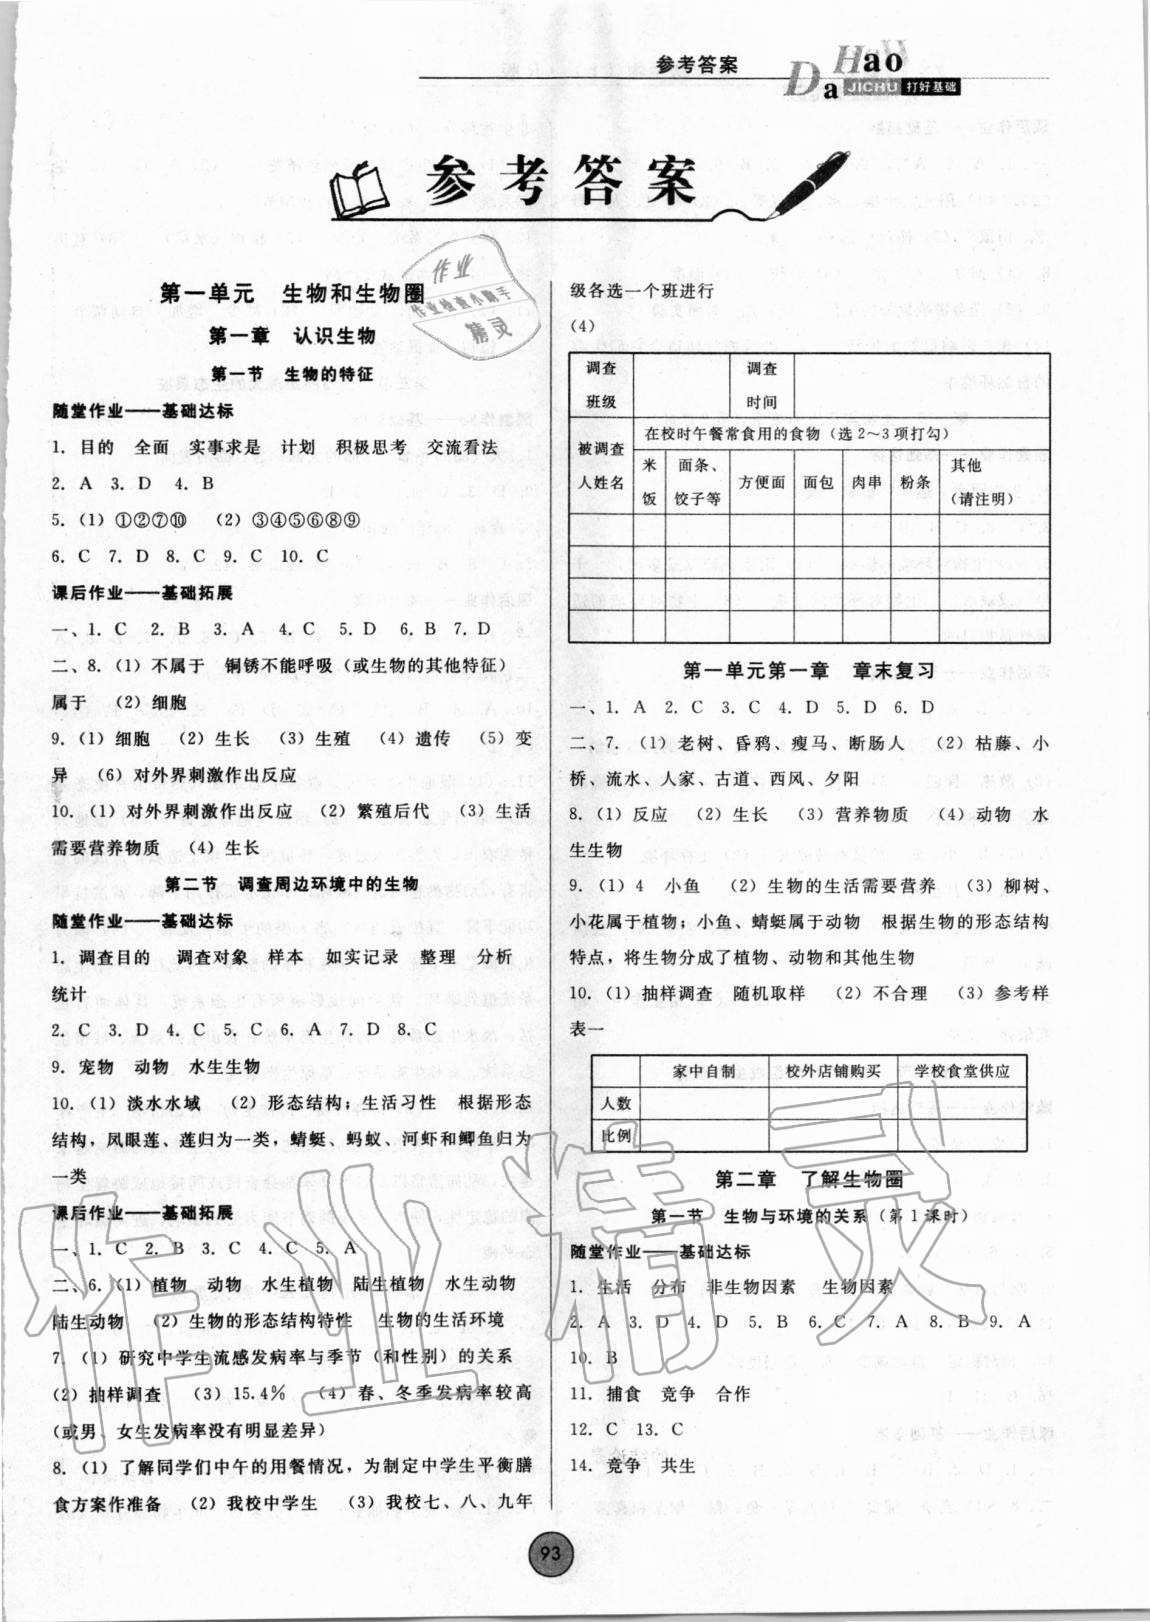 参考答案
Da Hao
JICHU 打好基础
参考答案
第一单元 生物和生物圈
第一章 认识生物
第一节 生物的特征
随堂作业——基础达标
1. 目的 全面 实事求是 计划 积极思考 交流看法
2. A 3. D 4. B
5.(1)①②⑦⑩ (2)③④⑤⑥⑧⑨
6. C 7. D 8. C 9. C 10. C
课后作业——基础拓展
一、1. C 2. B 3. A 4. C 5. D 6. B 7. D
二、8.(1)不属于 铜锈不能呼吸(或生物的其他特征)
属于 (2)细胞
9.(1)细胞 (2)生长 (3)生殖 (4)遗传 (5)变
异 (6)对外界刺激作出反应
10.(1)对外界刺激作出反应 (2)繁殖后代 (3)生活
需要营养物质 (4)生长
第二节 调查周边环境中的生物
随堂作业——基础达标
1. 调查目的 调查对象 样本 如实记录 整理 分析
统计
2. C 3. D 4. C 5. C 6. A 7. D 8. C
9. 宠物 动物 水生生物
10.(1)淡水水域 (2)形态结构;生活习性 根据形态
结构,凤眼莲、莲归为一类,蜻蜓、蚂蚁、河虾和鲫鱼归为
一类
课后作业——基础拓展
一、1. C 2. B 3. C 4. C 5. A
二、6.(1)植物 动物 水生植物 陆生植物 水生动物
陆生动物 (2)生物的形态结构特性 生物的生活环境
7.(1)研究中学生流感发病率与季节(和性别)的关系
(2)抽样调查 (3)15.4% (4)春、冬季发病率较高
(或男、女生发病率没有明显差异)
8.(1)了解同学们中午的用餐情况,为制定中学生平衡膳
食方案作准备 (2)我校中学生 (3)我校七、八、九年
级各选一个班进行
(4)
调查班级 调查时间
被调查人姓名 在校时午餐常食用的食物(选2~3项打勾)
米饭 面条、饺子等 方便面 面包 肉串 粉条 其他(请注明)
第一单元第一章 章末复习
一、1. A 2. C 3. C 4. D 5. D 6. D
二、7.(1)老树、昏鸦、瘦马、断肠人 (2)枯藤、小
桥、流水、人家、古道、西风、夕阳
8.(1)反应 (2)生长 (3)营养物质 (4)动物 水
生生物
9.(1)4 小鱼 (2)生物的生活需要营养 (3)柳树、
小花属于植物;小鱼、蜻蜓属于动物 根据生物的形态结构
特点,将生物分成了植物、动物和其他生物
10.(1)抽样调查 随机取样 (2)不合理 (3)参考样
表一
家中自制 校外店铺购买 学校食堂供应
人数
比例
第二章 了解生物圈
第一节 生物与环境的关系(第1课时)
随堂作业——基础达标
1. 生活 分布 非生物因素 生物因素
2. A 3. D 4. D 5. B 6. C 7. A 8. B 9. A
10. B
11. 捕食 竞争 合作
12. C 13. C
14. 竞争 共生
93
作业
作业检查小助手
精灵
作业精灵